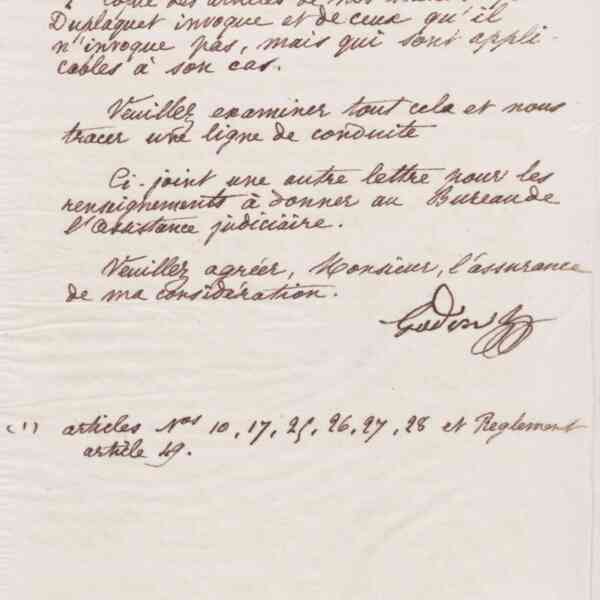 copie des articles de nos
Duplaquet invoque et de ceux qu'il
n'invoque pas, mais qui sont appli-
cables à son cas.
Veuillez examiner tout cela et nous
tracer une ligne de conduite
Ci-joint une autre lettre pour les
renseignements à donner au Bureau de
l'assistance judiciaire.
Veuillez agréer, Monsieur, l'assurance
de ma considération.
Godin
(1) articles Nos 10, 17, 25, 26, 27, 28 et Reglement
article 49.